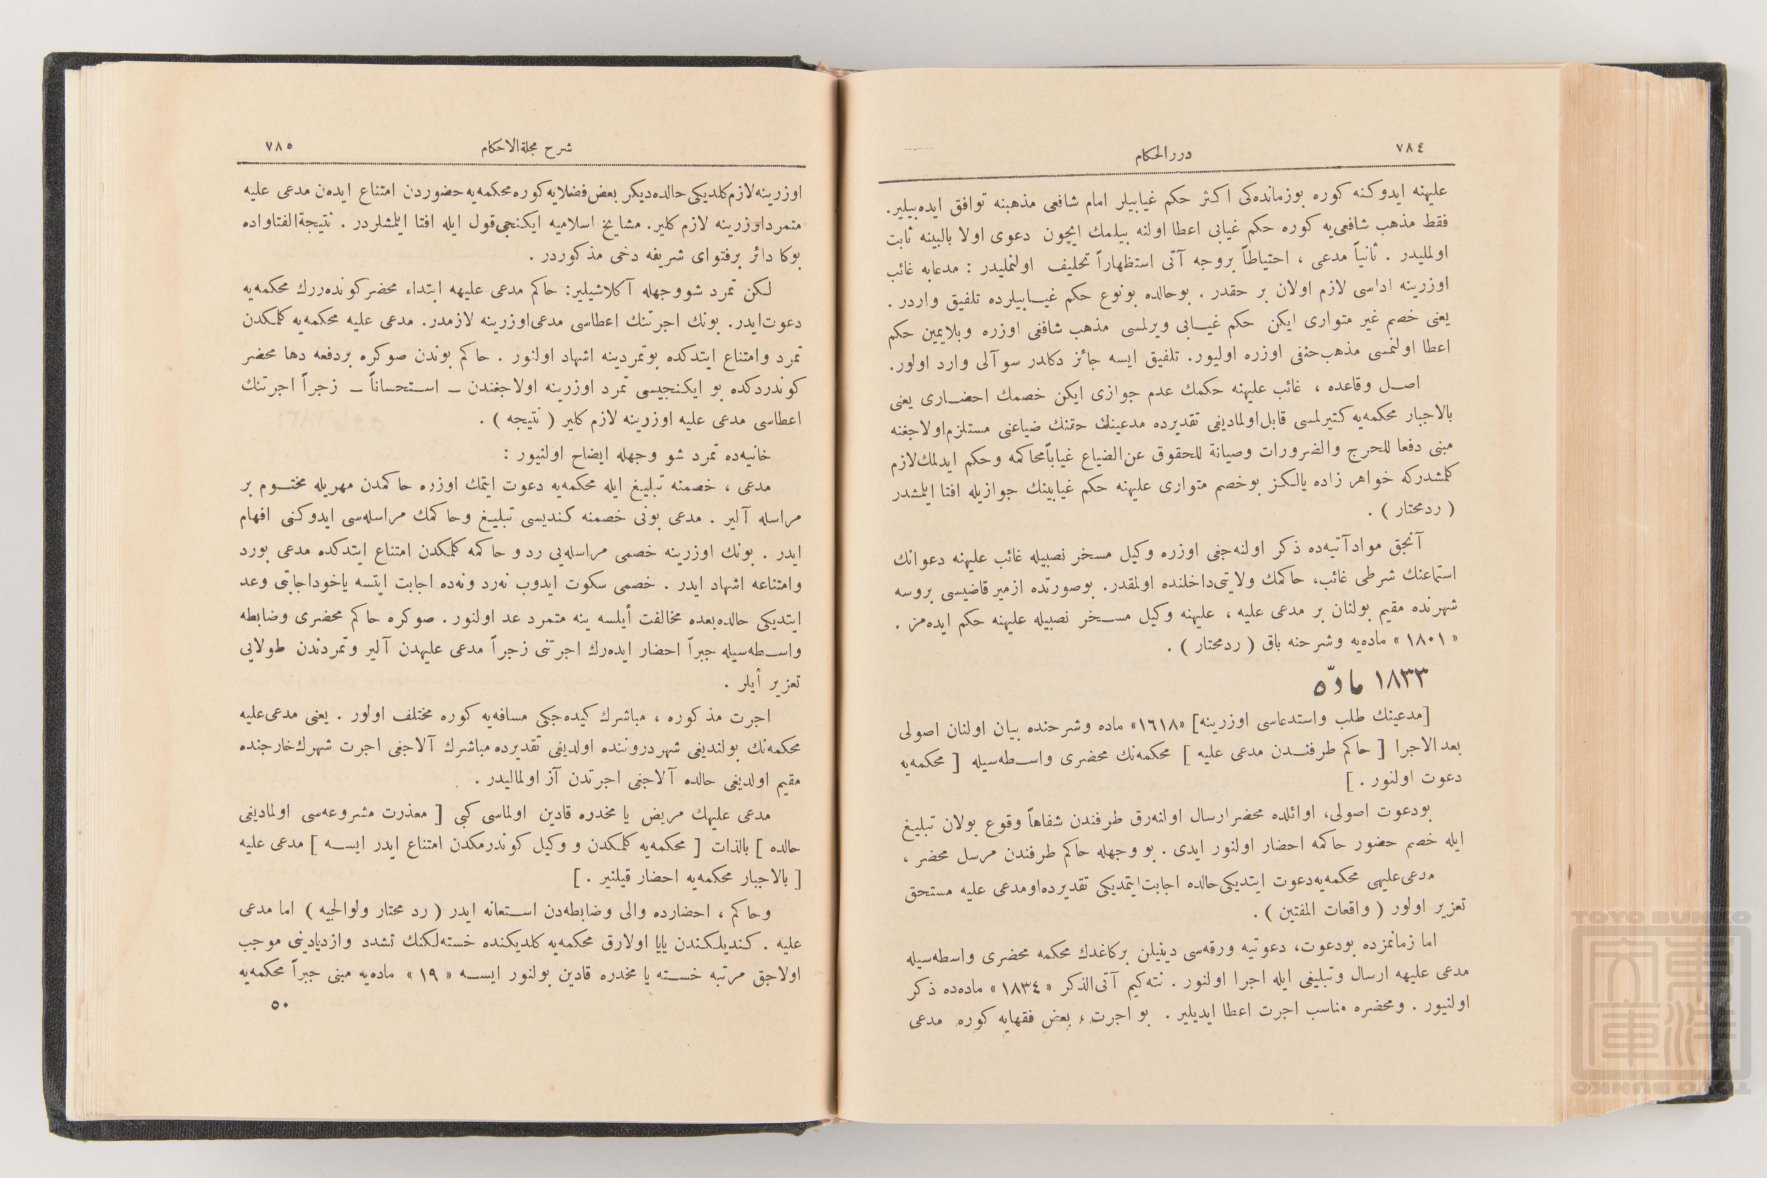 ٧٨٤
دررالحكام
علیهنه ایدوكنه كوره بوزمانده‌كی اكثر حكم غیابیلر امام شافعی مذهبنه توافق ایده‌بیلیر.
فقط مذهب شافعی‌یه كوره حكم غیابی اعطا اولنه بیلمك ایچون دعوی اولا بالبینه ثابت
اولملیدر . ثانیاً مدعی ، احتیاطاً بروجه آتی استظهاراً تحلیف اولنملیدر : مدعابه غائب
اوزرینه اداسی لازم اولان بر حقدر . بوحالده بونوع حكم غیـابیلرده تلفیق واردر .
یعنی خصم غیر متواری ایكن حكم غیـابی ویرلمسی مذهب شافعی اوزره وبلایمین حكم
اعطا اولنمسی مذهب‌حنفی اوزره اولیور. تلفیق ایسه جائز دكلدر سوآلی وارد اولور.
اصـل وقاعده ، غائب علیهنه حكمك عدم جوازی ایكن خصمك احضـاری یعنی
بالاجبار محكمه‌یه كتیرلمسی قابل‌اولمادیغی تقدیرده مدعینك حقنك ضیاعنی مستلزم‌اولاجغنه
مبنی دفعا للحرج والضرورات وصیانة للحقوق عن‌الضیاع غیاباًمحاكمه وحكم ایدلمك‌لازم
كلمشدركه خواهر زاده یالـكز بوخصم متواری علیهنه حكم غیابینك جوازیله افتا ایلمشدر
( ردمحتار ) .
آنجق موادآتیه‌ده ذكر اولنه‌جغی اوزره وكیل مسخر نصبیله غائب علیهنه دعوانك
استماعنك شرطی غائب، حاكمك ولایتی‌داخلنده اولمقدر. بوصورتده ازمیر قاضیسی بروسه
شهرنده مقیم بولنان بر مدعی علیه ، علیهنه وكیل مسـخر نصبیله علیهنه حكم ایده‌مز .
«١٨٠١» ماده‌یه وشرحنه باق ( ردمحتار ) .
١٨٣٣ مادّه
[مدعینك طلب واستدعاسی اوزرینه] «١٦١٨» ماده وشرحنده بیان اولنان اصولی
بعد الاجرا [ حاكم طرفنـدن مدعی علیه ] محكمه‌نك محضری واسـطه‌سیله [ محكمه‌یه
دعوت اولنور . ]
بودعوت اصولی، اوائلده محضر‌ارسال اولنه‌رق طرفندن شفاهاً وقوع بولان تبلیغ
ایله خصم حضور حاكمه احضار اولنور ایدی . بو وجهله حاكم طرفندن مرسل محضر ،
مدعی‌علیهی محكمه‌یه‌دعوت ایتدیكی‌حالده اجابت‌ایتمدیكی تقدیرده‌اومدعی علیه مستحق
تعزیر اولور ( واقعات المفتین ) .
اما زمانمزده بودعوت، دعوتیه ورقه‌سی دینیلن بركاغدك محكمه محضری واسطه‌سیله
مدعی علیهه ارسال وتبلیغی ایله اجرا اولنور . نته‌كیم آتی‌الذكر «١٨٣٤» ماده‌ده ذكر
اولنیور . ومحضره مناسب اجرت اعطا ایدیلیر . بو اجرت ، بعض فقهایه كوره مدعی
٧٨٥
شرح مجلةالاحكام
اوزرینه‌لازم‌كلدیكی حالده‌دیكر بعض‌فضلایه‌كوره‌محكمه‌یه‌حضوردن امتناع ایده‌ن مدعی علیه
متمرداوزرینه لازم كلیر. مشایخ اسلامیه ایكنجی‌قول ایله افتا ایلمشلردر . نتیجةالفتاواده
بوكا دائر برفتوای شریفه دخی مذكوردر .
لـكن تمرد شووجهله آكلاشیلیر: حاكم مدعی علیهه ابتداء محضركونده‌ررك محكمه‌یه
دعوت‌ایدر. بونك اجرتنك اعطاسی مدعی‌اوزرینه لازمدر. مدعی علیه محكمه‌یه كلمـكدن
تمرد وامتناع ایتدكده بوتمردینه اشهاد اولنور . حاكم بوندن صوكره بردفعه دها محضر
كوندردكده بو ایكنجیسی تمرد اوزرینه اولاجغندن ـ اسـتحساناً ـ زجراً اجرتنك
اعطاسی مدعی علیه اوزرینه لازم كلیر ( نتیجه ) .
خانیه‌ده تمرد شو وجهله ایضاح اولنیور :
مدعی ، خصمنه تبلیـغ ایله محكمه‌یه دعوت ایتمك اوزره حاكمدن مهریله مختـوم بر
مراسله آلیر . مدعی بونی خصمنه كـندیسی تبلیـغ وحاكمك مراسله‌سی ایدوكـنی افهام
ایدر . بونك اوزرینه خصمی مراسله‌یی رد و حاكمه كلمكدن امتناع ایتدكده مدعی بورد
وامتناعه اشهاد ایدر . خصمی سكوت ایدوب نه‌رد ونه‌ده اجابت ایتسه یاخوداجابتی وعد
ایتدیكی حالده‌بعده مخالفت أیلسه ینه متمرد عد اولنور . صوكره حاكم محضری وضابطه
واسـطه‌سیله جبراً احضار ایده‌رك اجرتنی زجراً مدعی علیهدن آلیر وتمردندن طولایی
تعزیر أیلر .
اجرت مذكوره ، مباشرك كیده‌جكی مسافه‌یه كوره مختلف اولور . یعنی مدعی‌علیه
محكمه‌نك بولندیغی شهر دروننده اولدیغی تقدیرده مباشرك آلاجغی اجرت شهرك‌خارجنده
مقیم اولدیغی حالده آلاجغی اجرتدن آز اولمالیدر .
مدعی علیهك مریض یا مخدره قادین اولماسی كبی [ معذرت مشروعه‌سی اولمادیغی
حالده ] بالذات [ محكمه‌یه كلمـكدن و وكیل كوندرمكدن امتناع ایدر ایسـه ] مدعی علیه
[ بالاجبار محكمه‌یه احضار قیلنیر . ]
وحاكم ، احضارده والی وضابطه‌دن اسـتعانه ایدر ( رد محتار ولوالجیه ) اما مدعی
علیه . كـندیلـكندن یایا اولارق محكمه‌یه كلدیكنده خسته‌لكنك تشدد وازدیادینی موجب
اولاجق مرتبه خسـته یا مخدره قادین بولنور ایسـه «١٩» ماده‌یه مبنی جبراً محكمه‌یه
٥٠
TOYO BUNKO
TOYO BUNKO